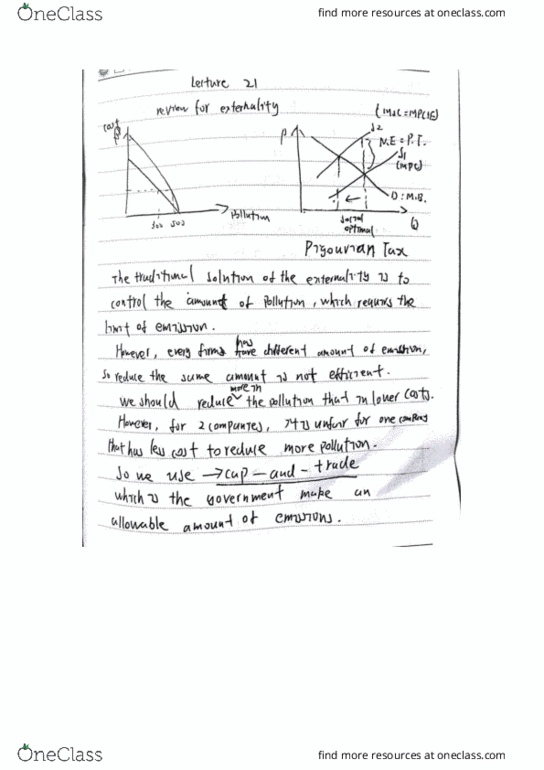 OneClass
find more resources at oneclass.com
Lecture 21
review for externality
(MSC=MPC+E)
Cost
P
S2
M.E = P.T.
S1
(MPC)
D : M.B.
Pollution
Q
social
optimal
Pigouvian Tax
The traditional solution of the externality is to
control the amount of pollution, which requires the
limit of emission.
However, every firms has have different amount of emission,
so reduce the same amount is not efficient.
we should reduce more in the pollution that in lower costs.
However, for 2 companies, it is unfair for one company
that has less cost to reduce more pollution.
So we use → cap - and - trade
which is the government make an
allowable amount of emissions.
OneClass
find more resources at oneclass.com